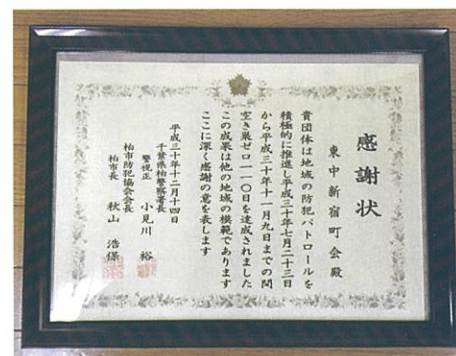 感謝状
東中新宿町会殿
貴団体は地域の防犯パトロールを
積極的に推進し平成三十年七月二十三日
から平成三十年十一月九日までの間
空き巣ゼロ一一〇日を達成されました
この成果は他の地域の模範であります
ここに深く感謝の意を表します
平成三十年十二月十四日
千葉県柏警察署長
警視正 小見川 裕
柏市防犯協会会長
柏市長 秋山 浩保